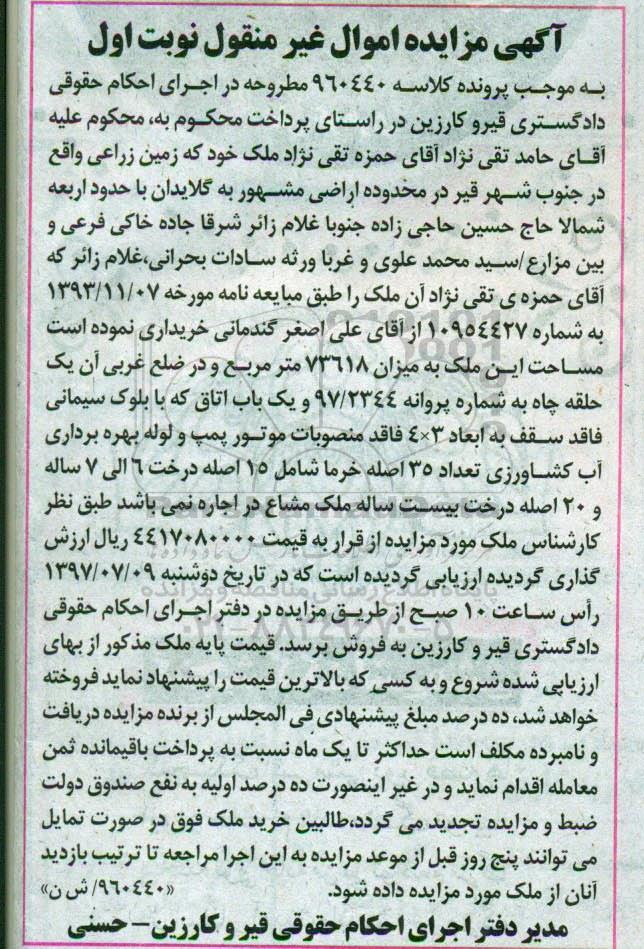 آگهی مزایده اموال غیر منقول نوبت اول
به موجب پرونده کلاسه ۹۶۰۴۴۰ مطروحه در اجرای احکام حقوقی
دادگستری قیرو کارزین در راستای پرداخت محکوم به، محکوم علیه
آقای حامد تقی نژاد آقای حمزه تقی نژاد ملک خود که زمین زراعی واقع
در جنوب شهر قیر در محدوده اراضی مشهور به گلایدان با حدود اربعه
شمالا حاج حسین حاجی زاده جنوبا غلام زائر شرقا جاده خاکی فرعی و
بین مزارع/سید محمد علوی و غربا ورثه سادات بحرانی،غلام زائر که
آقای حمزه ی تقی نژاد آن ملک را طبق مبایعه نامه مورخه ۱۳۹۳/۱۱/۰۷
به شماره ۱۰۹۵۴۴۲۷ از آقای علی اصغر گندمانی خریداری نموده است
مساحت این ملک به میزان ۷۳۶۱۸ متر مربع و در ضلع غربی آن یک
حلقه چاه به شماره پروانه ۹۷/۲۳۴۴ و یک باب اتاق که با بلوک سیمانی
فاقد سقف به ابعاد ۳×۴ فاقد منصوبات موتور پمپ و لوله بهره برداری
آب کشاورزی تعداد ۳۵ اصله خرما شامل ۱۵ اصله درخت ۶ الی ۷ ساله
و ۲۰ اصله درخت بیست ساله ملک مشاع در اجاره نمی باشد طبق نظر
کارشناس ملک مورد مزایده از قرار به قیمت ۴۴۱۷۰۸۰۰۰۰ ریال ارزش
گذاری گردیده ارزیابی گردیده است که در تاریخ دوشنبه ۱۳۹۷/۰۷/۰۹
رأس ساعت ۱۰ صبح از طریق مزایده در دفتر اجرای احکام حقوقی
دادگستری قیر و کارزین به فروش برسد. قیمت پایه ملک مذکور از بهای
ارزیابی شده شروع و به کسی که بالاترین قیمت را پیشنهاد نماید فروخته
خواهد شد، ده درصد مبلغ پیشنهادی فی المجلس از برنده مزایده دریافت
و نامبرده مکلف است حداکثر تا یک ماه نسبت به پرداخت باقیمانده ثمن
معامله اقدام نماید و در غیر اینصورت ده درصد اولیه به نفع صندوق دولت
ضبط و مزایده تجدید می گردد،طالبین خرید ملک فوق در صورت تمایل
می توانند پنج روز قبل از موعد مزایده به این اجرا مراجعه تا ترتیب بازدید
آنان از ملک مورد مزایده داده شود. «۹۶۰۴۴۰/ش ن»
مدیر دفتر اجرای احکام حقوقی قیر و کارزین– حسنی